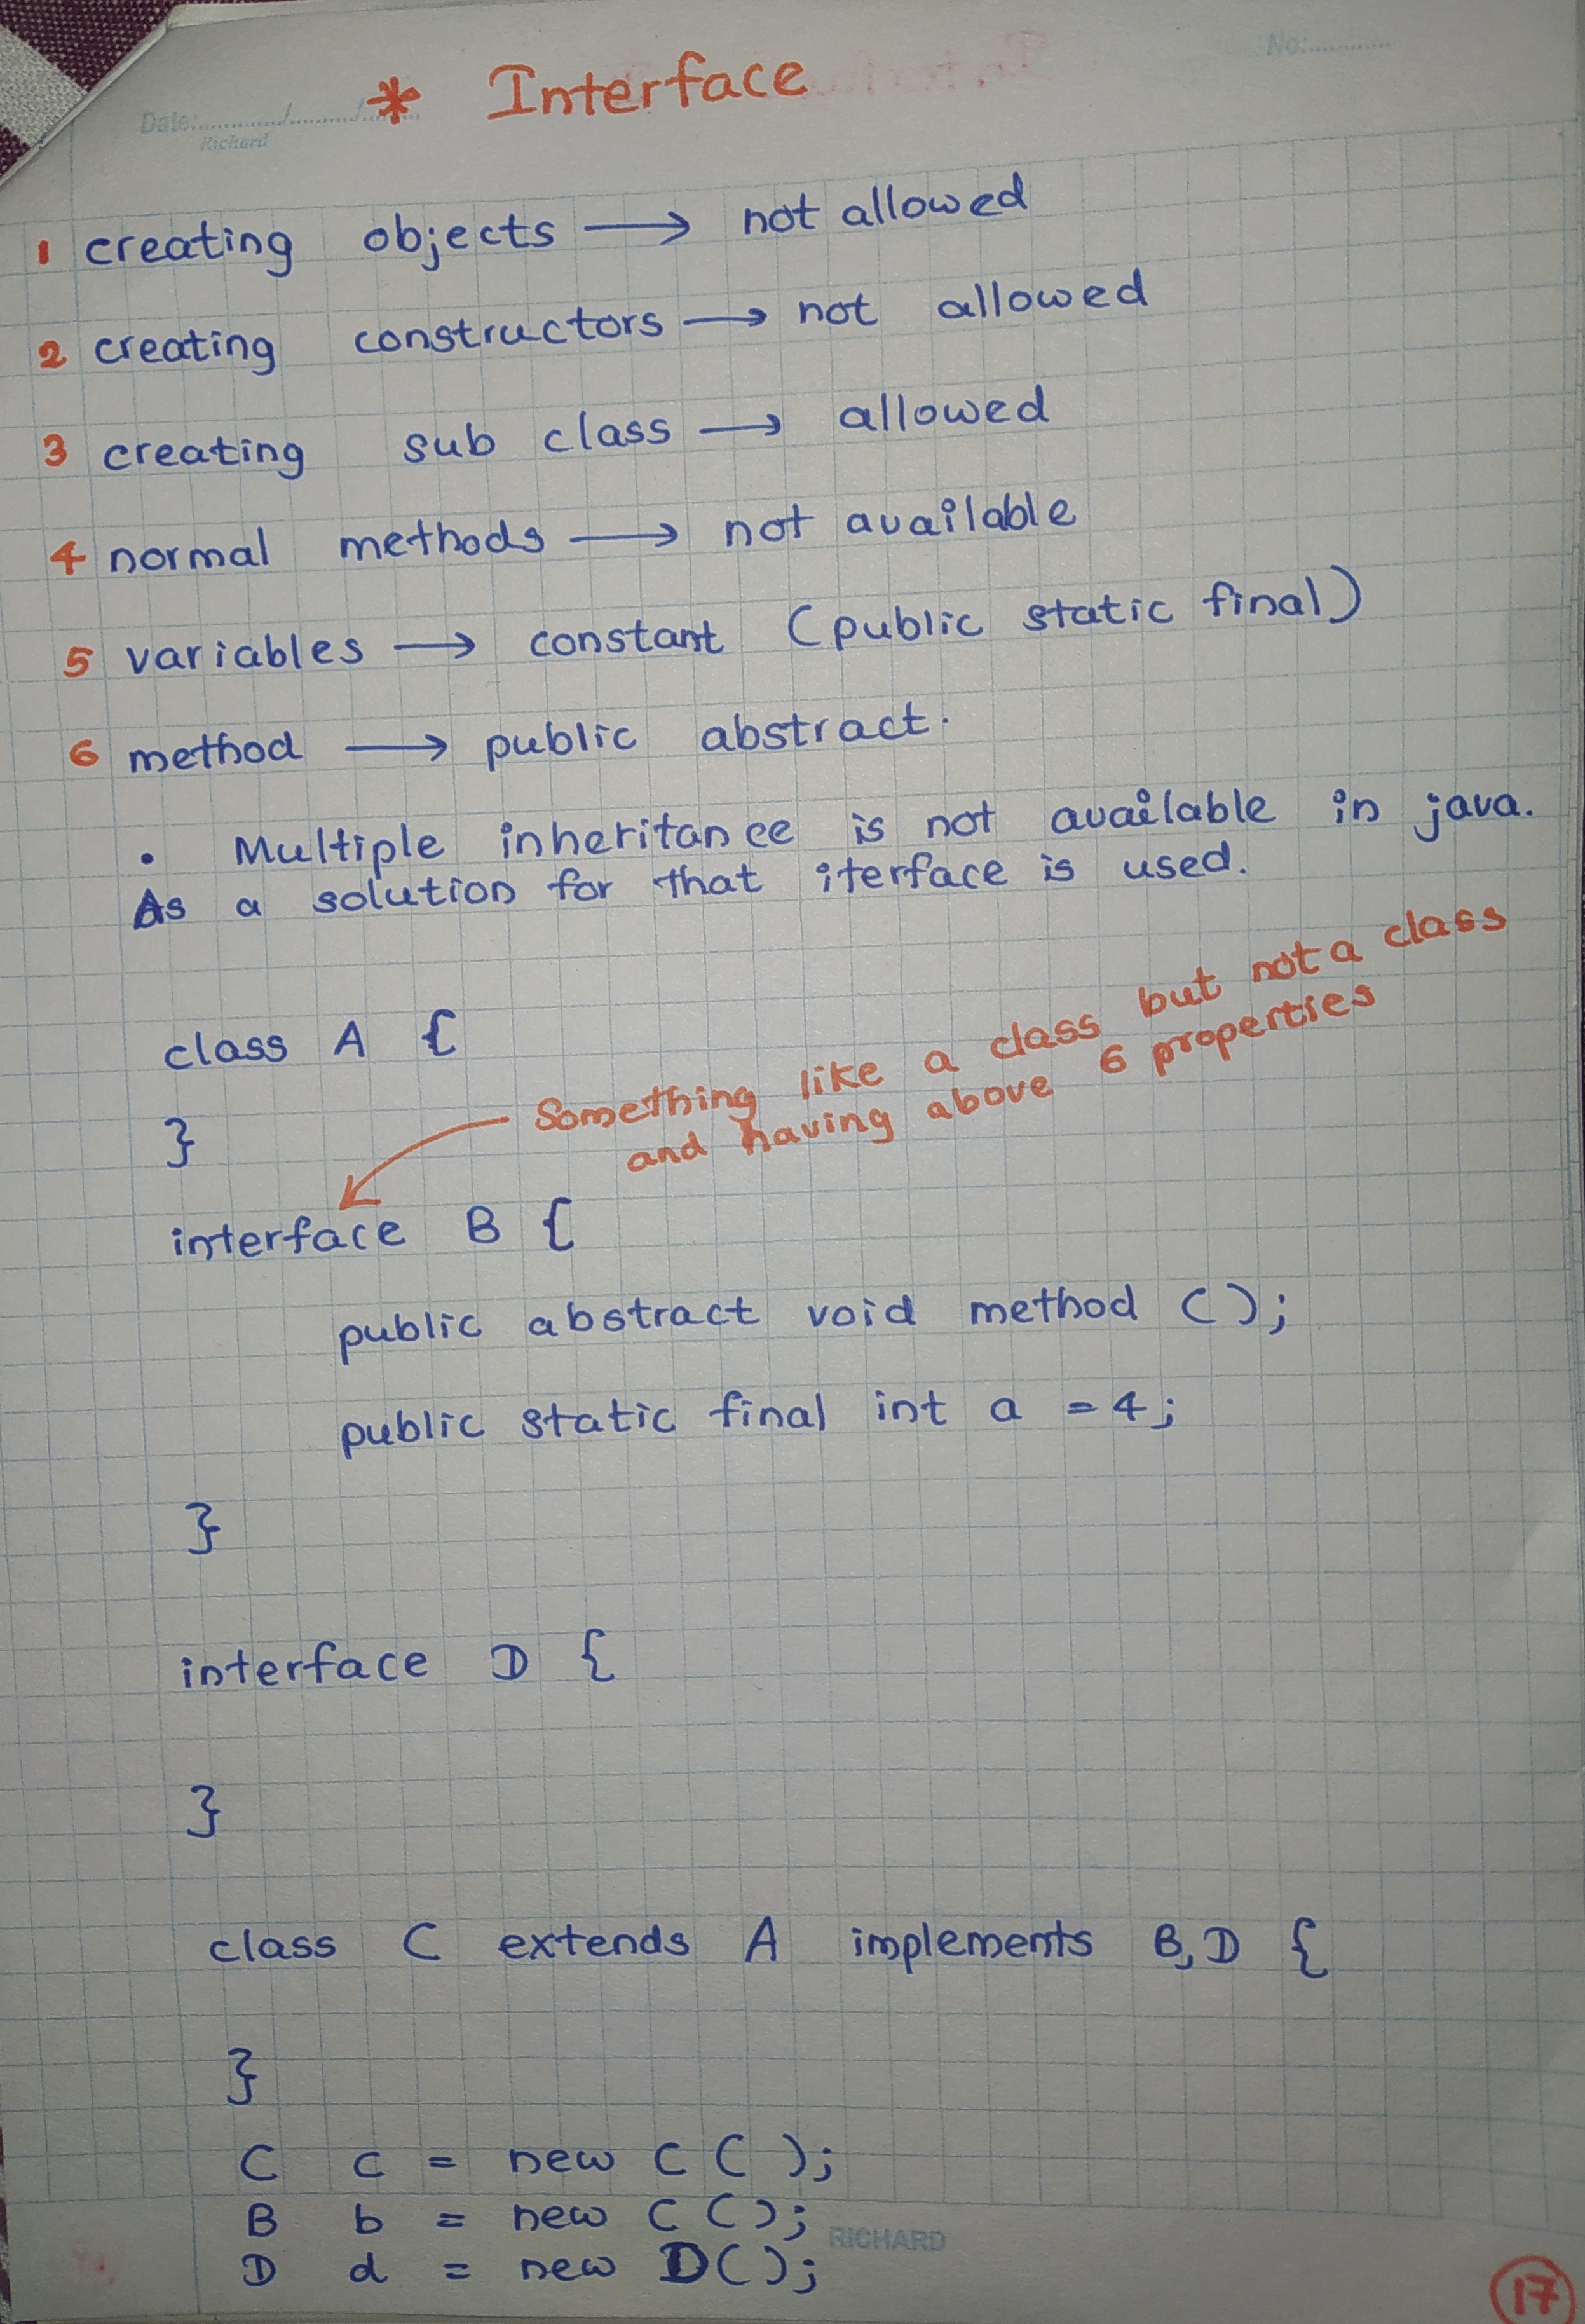 No:............
* Interface
Date:............/............/............
Richard
1 creating objects → not allowed
2 creating constructors → not allowed
3 creating sub class → allowed
4 normal methods → not available
5 variables → constant (public static final)
6 method → public abstract.
• Multiple inheritance is not available in java.
As a solution for that iterface is used.
class A {
Something like a class but not a class
and having above 6 properties
}
interface B {
public abstract void method ();
public static final int a = 4;
}
interface D {
}
class C extends A implements B, D {
}
C c = new C ( );
B b = new C ();
D d = new D();
RICHARD
17